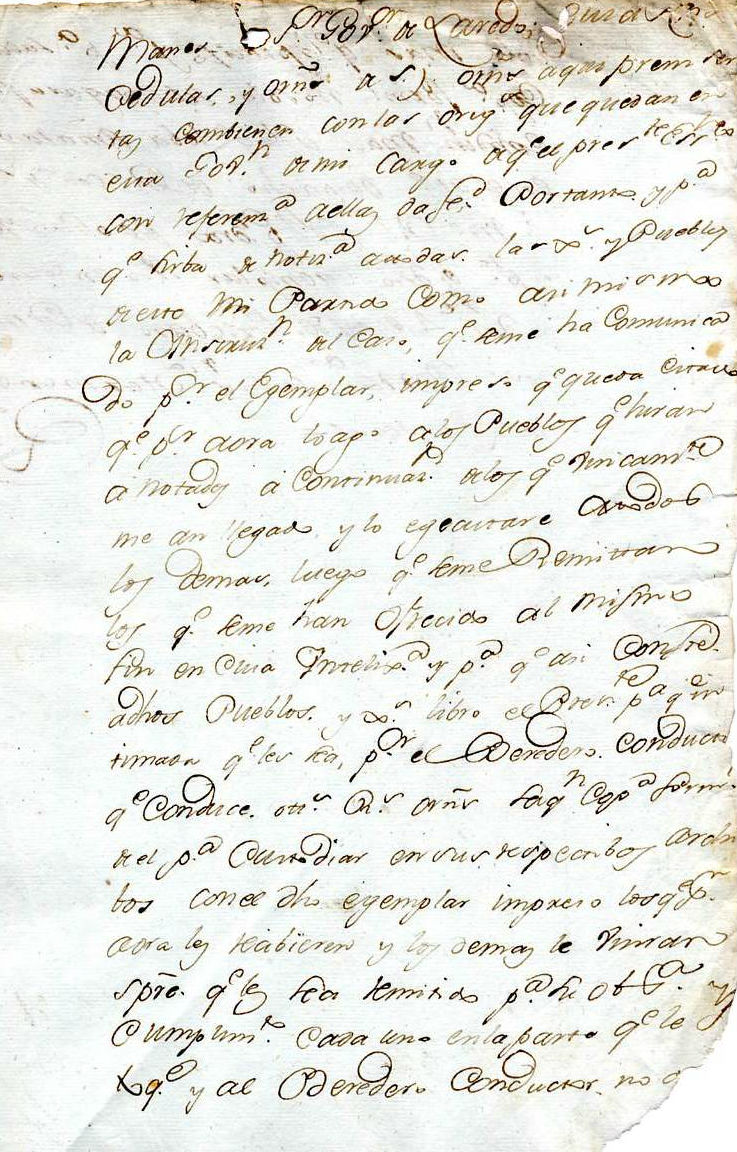 Manos Sr Govr de Laredo
Cedulas, y orns aqui
tas combienen con las orig.s que quedan en
esta Gov.n de mi cargo de q.e el pres.te
con referenz.a aellas da fee Por tanto y p.a
q.e sirba de notiz.a a todas las y Pueblos
de este mi Partido como asi mismo
la Instruz.n del caso, q.e seme ha Comunica
do p.r el Egemplar, impreso q.e queda citado
q.e p.r aora lo ago a los Pueblos q.e hiran
anotados a Continuaz.n de los q.e unicam.te
me an llegado y lo egecutare a todos
los demas, luego q.e seme Remittan
los q.e seme han Ofrecido al mismo
fin en cuia Intelix.a y p.a q.e asi Conste
adhos Pueblos, y libro el Pres.te p.a q.e in
timada q.e les sea, p.r el Veredero conductor
q.e Conduce. orns saq.n Cop.a
de el p.a Custodiar en sus respectibos Archi
bos con el dho egemplar impreso los q.e p.r
aora les recibieren y los demas le
spre. q.e les sea remitido p.a su
Cumplim.to cada uno en la parte q.e le
y al Veredero Conductor no